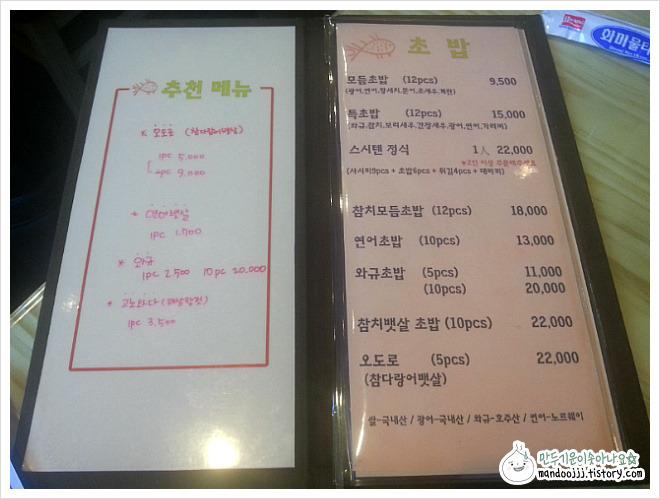 추천 메뉴
* 오도로 (참다랑어뱃살)
1pc 5,000
2pc 9,000
* 연어뱃살
1pc 1,700
* 와규
1pc 2,500 10pc 20,000
1pc 3,500
초밥
모듬초밥 (12pcs) 9,500
특초밥 (12pcs) 15,000
스시텐 정식 1人 22,000
*2인 이상 주문해주세요
(사시미9pcs + 초밥6pcs + 튀김4pcs +
참치모듬초밥 (12pcs) 18,000
연어초밥 (10pcs) 13,000
와규초밥 (5pcs) 11,000
(10pcs) 20,000
참치뱃살 초밥 (10pcs) 22,000
오도로 (5pcs) 22,000
(참다랑어뱃살)
쌀-국내산 / 광어-국내산 / 와규-호주산 / 연어-노르웨이
만두기운이솟아나요☆
mandoojjj.tistory.com